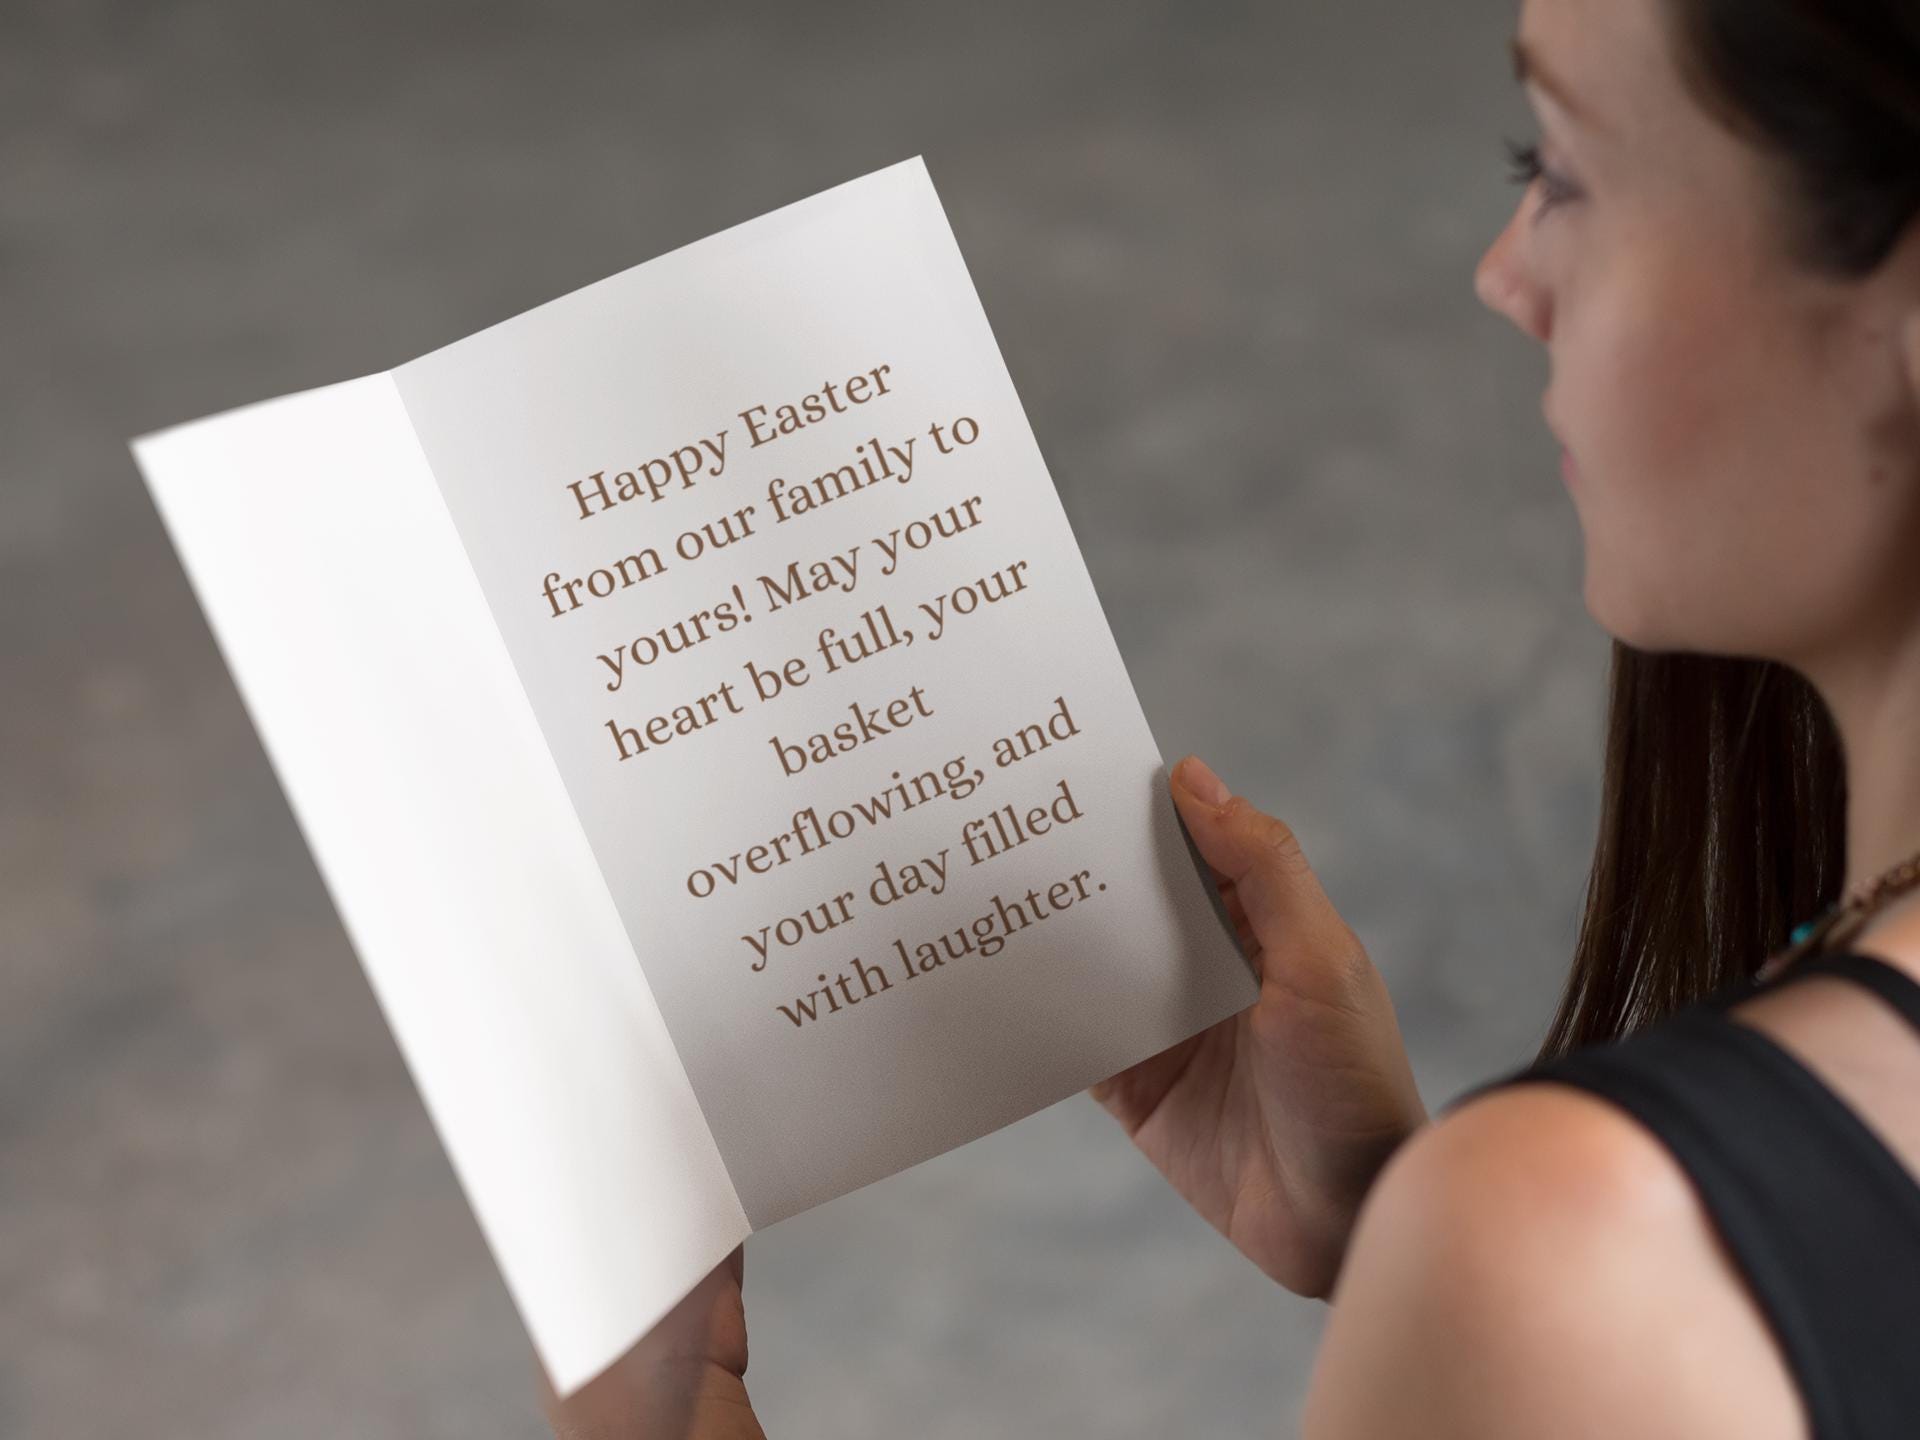 Happy Easter
from our family to
yours! May your
heart be full, your
basket
overflowing, and
your day filled
with laughter.